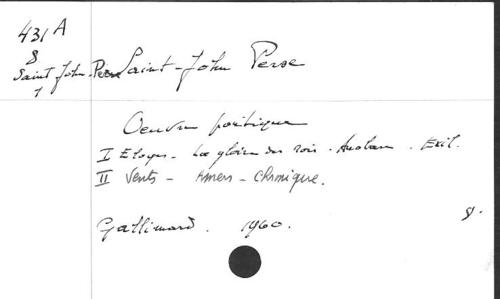 431 A
8
Saint John-Perse
1
Saint-John Perse
Oeuvre poétique
I Eloges - La gloire des rois - Anabase . Exil.
II Vents - Amers - Chronique.
Gallimard . 1960.
8.